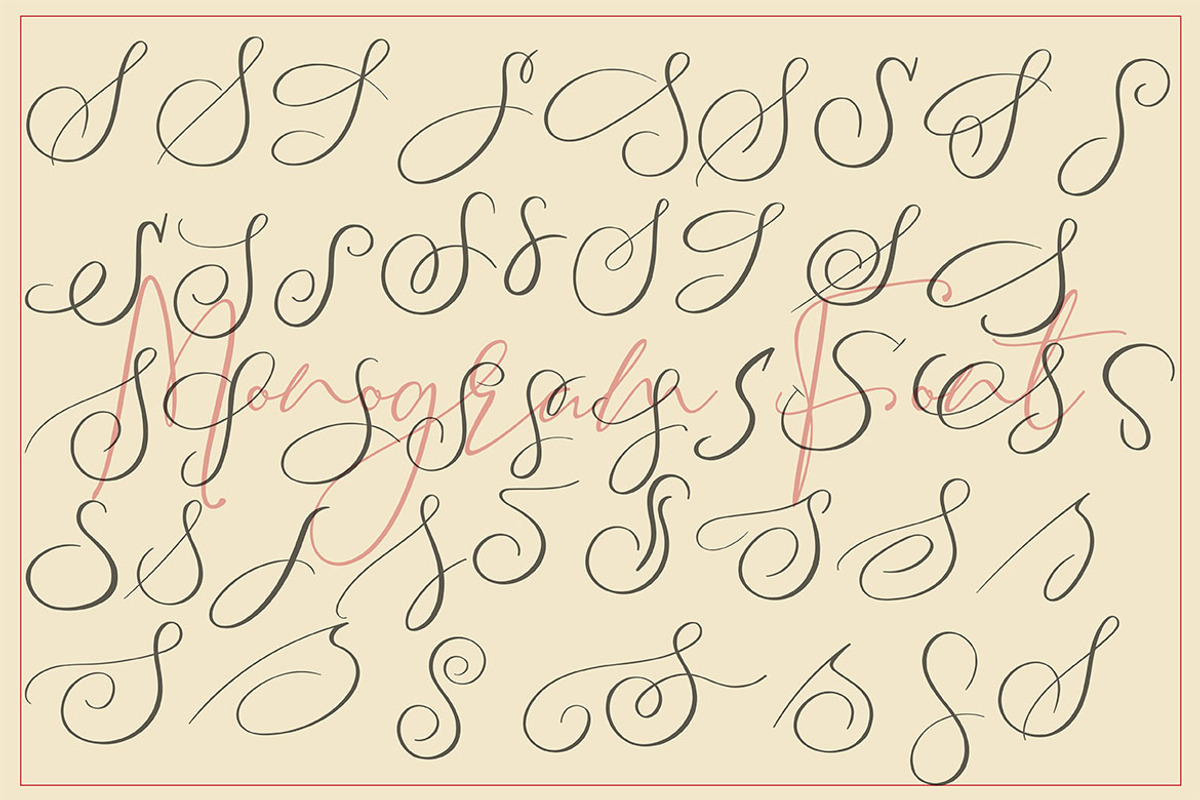 S S S S S S S S S
S S S S S S S S S
Monogram Font
S S S S S S S S S S
S S S S S S S S S
S S S S S S S